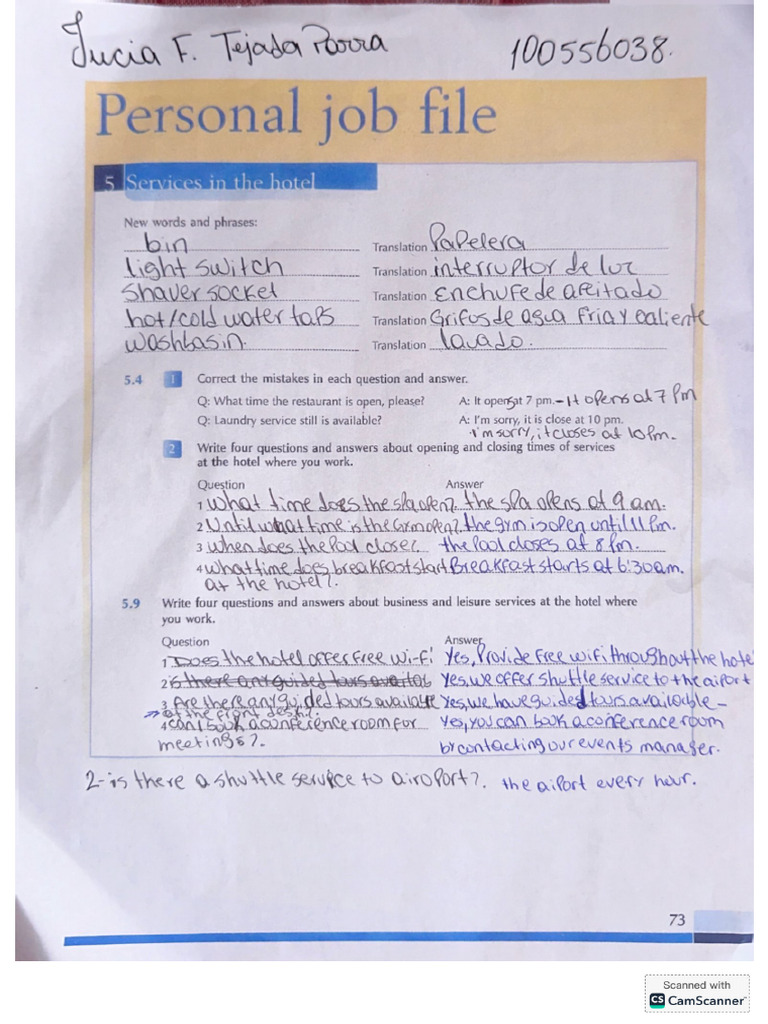 Lucia F. Tejada Parra 100556038.
Personal job file
5 Services in the hotel
New words and phrases:
bin Translation Papelera
light switch Translation interruptor de luz
Shaver socket Translation Enchufe de afeitado
hot/cold water taps Translation Grifos de agua fria y caliente
washbasin. Translation lavado.
5.4 1 Correct the mistakes in each question and answer.
Q: What time the restaurant is open, please? A: It opens at 7 pm. - It opens at 7 pm
Q: Laundry service still is available? A: I'm sorry, it is close at 10 pm.
· I'm sorry, it closes at 10 pm.
2 Write four questions and answers about opening and closing times of services
at the hotel where you work.
Question Answer
1 What time does the spa open? the spa opens at 9 am.
2 Until what time is the Gym open? the gym is open until 11 pm.
3 When does the Pool close? the Pool closes at 8 pm.
4 What time does breakfast start Breakfast starts at 6:30am.
at the hotel?.
5.9 Write four questions and answers about business and leisure services at the hotel where
you work.
Question Answer
1 Does the hotel offer free wi-fi? Yes, Provide free wifi throughout the hotel
2 is there any guided tours availab Yes, we offer shuttle service to the aiport
3 Are there any guided tours available Yes, we have guided tours available -
at the front desk?.
4 can I book a conference room for Yes, you can book a conference room
meetings?. by contacting our events manager.
2- is there a shuttle service to airoport?. the aiport every hour.
73
Scanned with
CS CamScanner